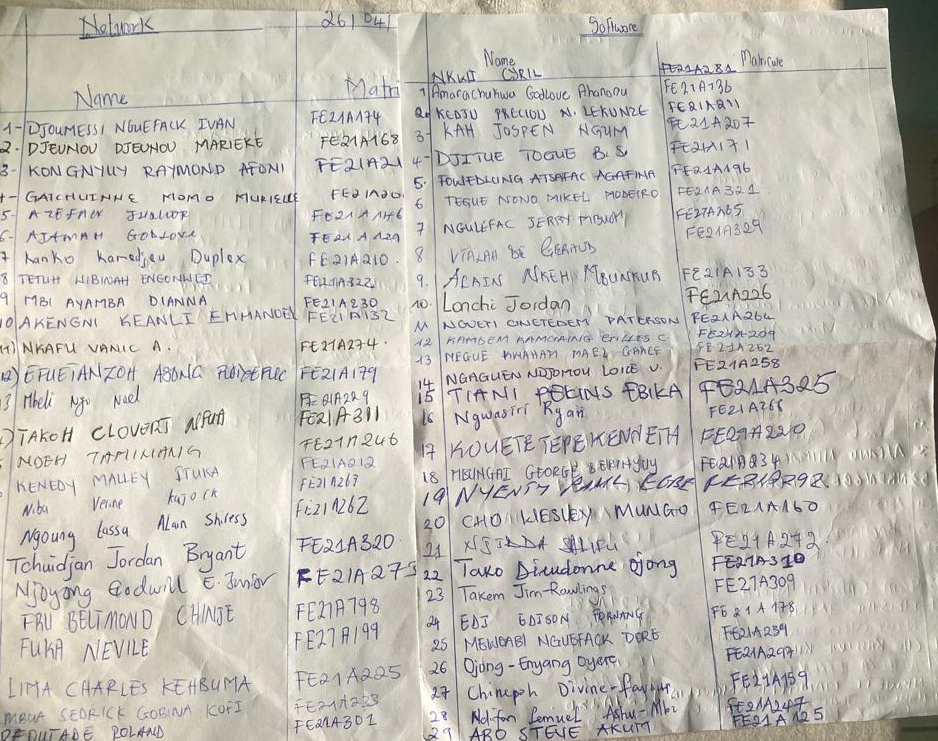 Network 26/04/
Name Matri
1- DJOUMESSI NGUEFACK IVAN FE21A174
2- DJEUNOU DJEUNOU MARIEKE FE21A168
3- KONGNYUY RAYMOND AFONI FE21A21
GATCHUINNE MOMO MURIELLE FE21A20
5- AZEFACK JUNIOR FE21A146
6- AJAMAH GODLOVE FE21A129
7 Kanko Karedjeu Duplex FE21A210
8 TETUH WIBINAH ENGONWEI FE21A322
9 MBI AYAMBA DIANNA FE21A230
10 AKENGNI KEANLI EMMANUEL FE21A132
11) NKAFU VANIC A. FE21A274
12) EFUETANZOH ASONG FE21A179
Mbeli Njo Noel FE21A229
TAKOH CLOVERT NFUA FE21A311
NOEH TAMINANG FE21A246
KENEDY MALLEY STUKA FE21A212
Niba Verine FE21A263
Ngoung Lassa Alan Shiress FE21A262
Tchuidjan Jordan Bryant FE21A320
Njoyong Godwill E. Junior FE21A275
FRU BELTMOND CHINJE FE21A198
FUKA NEVILE FE21A199
LIMA CHARLES KEHBUMA FE21A225
MBUA SEDRICK GOBINA KOFI FE21A233
ROLAND FE21A301
Software
Name Matricule
NKWI CYRIL FE21A281
1 Amarachukwu Godlove Ahanonu FE21A136
2 KEDJU PRECIOU N. LEKUNZE FE21A211
3- KAH JOSPEN NGUM FE21A207
4- DJITUE TOGUE B.S. FE21A171
5. ATSAFAC AGAFINA FE21A196
6 TEGUE NONO MIKEL MODEIRO FE21A321
7 NGULEFAC JERRY MBUOH FE21A265
8 VIALAH DE GERAUD FE21A329
9. ALAIN NKEH MBUNKUR FE21A133
10. Lonchi Jordan FE21A226
11 PATERSON FE21A264
12 KAMDEM FE21A209
13 MEGUE KWAHAM MAEL GRACE FE21A252
14 NGAGUEN NDJOMOU LOIC V. FE21A258
15 TIANI POLINS EBIKA FE21A325
16 Ngwasiri Ryan FE21A266
17 KOUETE TEPE KENNETH FE21A220
18 MBUNGAI GEORGE BERINYUY FE21A234
19 NYENTY EGBE FE21A298
20 CHO WESLEY MUNGO FE21A160
21 NJIDDA SALIFU FE21A272
22 Tako Dieudonne Ojong FE21A310
23 Takem Jim-Rawlings FE21A309
24 EDI EDISON FORNANG FE21A178
25 MEWOABI NGUEFACK DORE FE21A239
26 Ojong-Enyang Oyere FE21A297
27 Chinepoh Divine-favour FE21A159
28 Ndifon Lemuel Ashu-Mbi FE21A247
29 ABO STEVE AKUM FE21A125